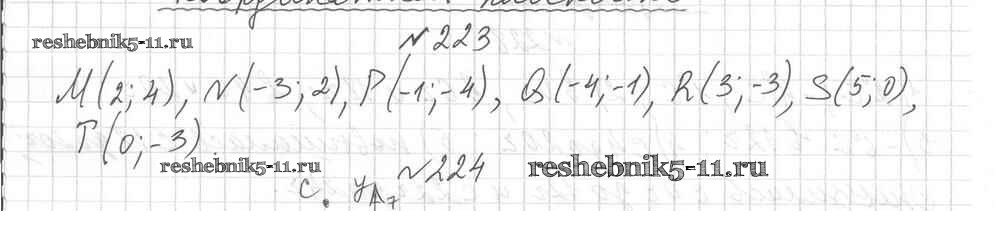 координатная плоскость
reshebnik5-11.ru
№223
M(2;4), N(-3;2), P(-1;-4), Q(-4;-1), R(3;-3), S(5;0),
T(0;-3)
reshebnik5-11.ru
№224
reshebnik5-11.ru
C. y 7